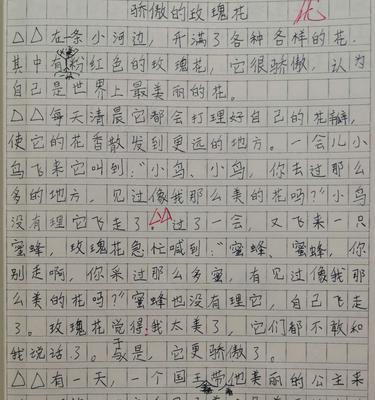 骄傲的玫瑰花
△△在一条小河边，开满了各种各样的花.
其中有粉红色的玫瑰花，它很骄傲，认为
自己是世界上最美丽的花。
△△每天清晨它都会打理好自己的花瓣，
使它的花香散发到更远的地方。一会儿小
鸟飞来它叫到："小鸟、小鸟，你去过那么
多的地方，见过像我那么美的花吗？"小鸟
没有理它飞走了。△△过了一会，又飞来一只
蜜蜂，玫瑰花急忙喊到："蜜蜂、蜜蜂，你
别走啊，你采过那么多蜜，有见过像我那
么美的花吗？"蜜蜂也没有理它，自己飞走
了。玫瑰花觉得：我太美了，它们都不敢和
我说话了。于是，它更骄傲了。
△△有一天，一个国王带他美丽的公主来